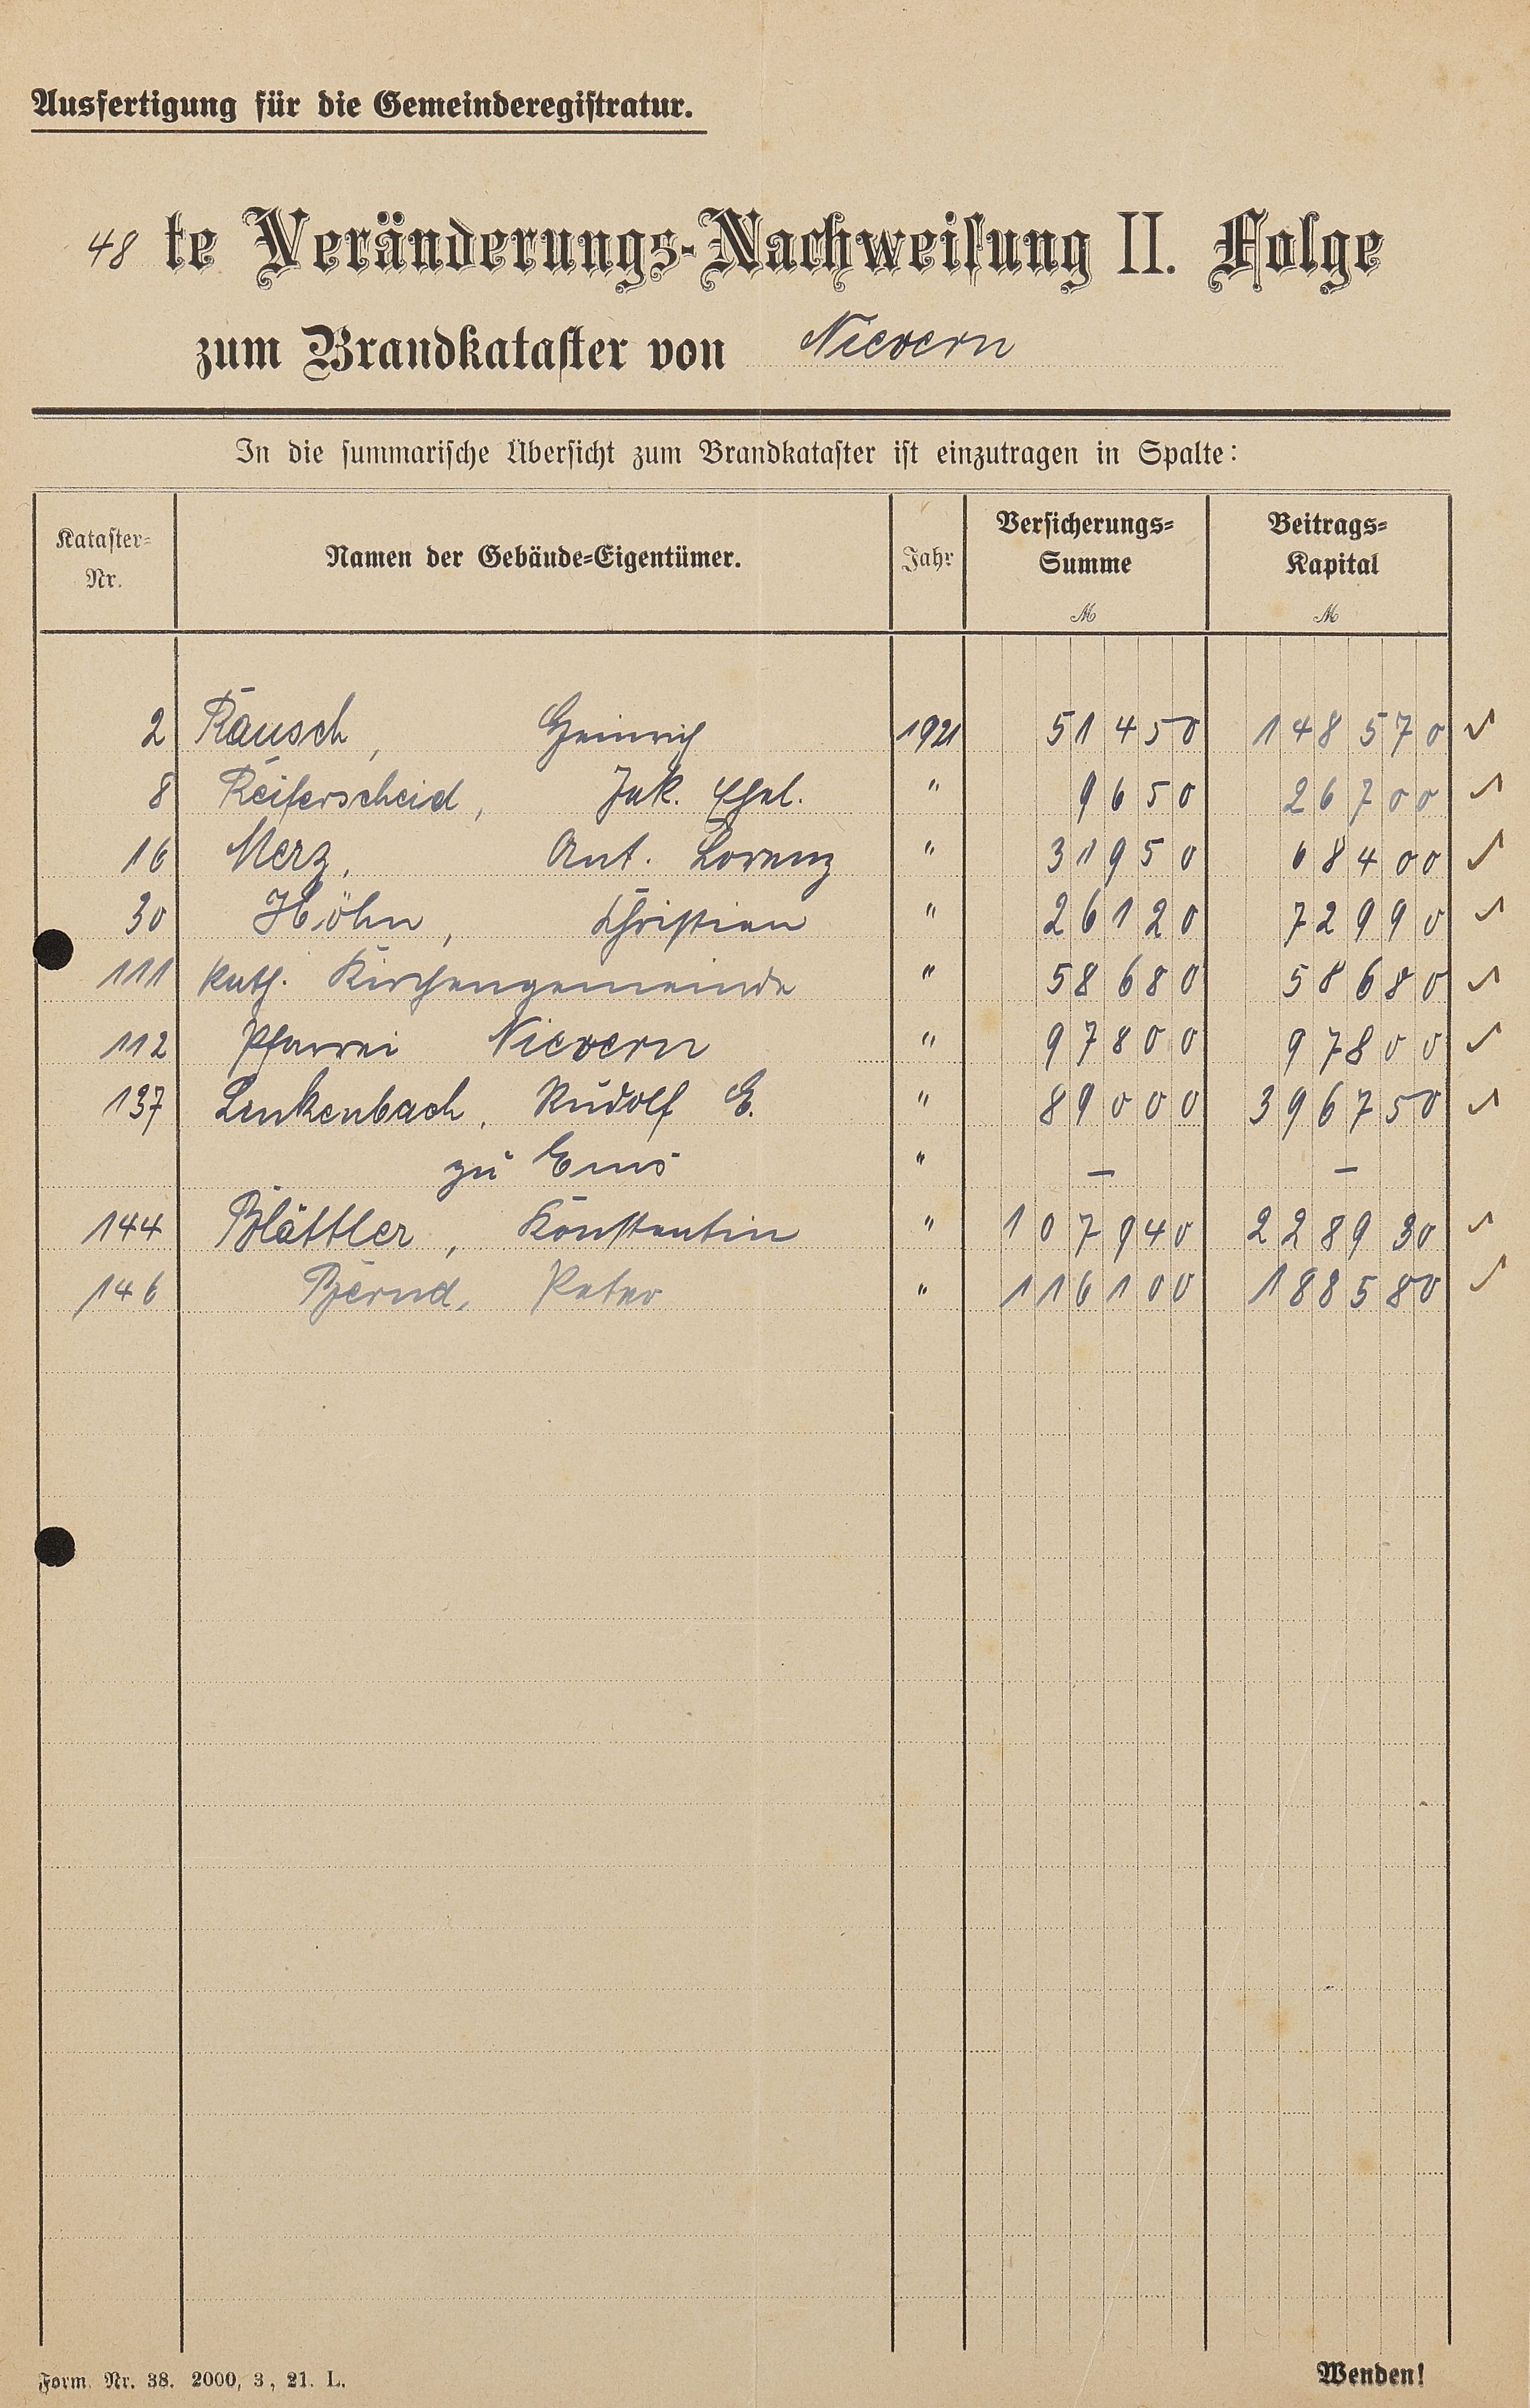 Ausfertigung für die Gemeinderegistratur.
48 te Veränderungs-Nachweisung II. Folge
zum Brandkataster von Nievern
In die summarische Übersicht zum Brandkataster ist einzutragen in Spalte:
Kataster-Nr. Namen der Gebäude-Eigentümer. Jahr Versicherungs-Summe M Beitrags-Kapital M
2 Rausch, Heinrich 1921 51450 148570 ✓
8 Reiferscheid, Jak. " 9650 26700 ✓
16 Merz, Ant. Lorenz " 31950 68400 ✓
30 Höhn, Christian " 26120 72990 ✓
111 Kath. Kirchengemeinde " 58680 58680 ✓
112 Pfarrei Nievern " 97800 97800 ✓
137 Linkenbach, Rudolf E. " 89000 396750 ✓
zu Ems " — —
144 Blättler, Konstantin " 107940 228930 ✓
146 Bernd, Peter " 116100 188580 ✓
Form. Nr. 38. 2000, 3, 21. L. Wenden!